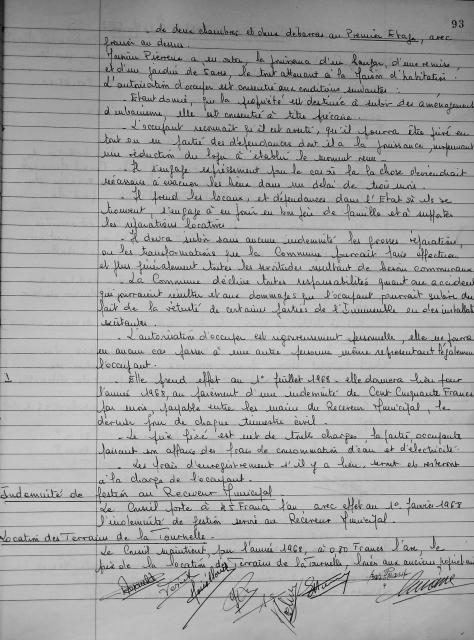 93
- de deux chambres et deux débarras au Premier Etage, avec
grenier au dessus.
Pierreuse a en outre, la jouissance d'un hangar, d'une remise,
et d'un jardin de 5 ares, le tout attenant à la Maison d'habitation.
L'autorisation d'occuper est consentie aux conditions suivantes :
- Etant donné, que la propriété est destinée à subir des aménagements
d'urbanisme, elle est consentie à titre précaire.
- L'occupant reconnaît qu'il est averti, qu'il pourra être privé en
tout ou en partie des dépendances dont il a la jouissance, moyennant
une réduction du loyer à établir le moment venu.
- Il s'engage expressément pour le cas où la chose deviendrait
nécessaire à évacuer les lieux dans un délai de trois mois.
- Il prend les locaux, et dépendances dans l'Etat où ils se
trouvent, s'engage à en jouir en bon père de famille et à supporter
les réparations locatives.
- Il devra subir sans aucune indemnité les grosses réparations,
ou les transformations que la Commune pourrait faire effectuer
et plus généralement toutes les servitudes résultant de besoin communaux
- La Commune décline toutes responsabilités quant aux accidents
qui pourraient résulter et aux dommages que l'occupant pourrait subir du
fait de la vétusté de certaines parties de l'Immeuble ou des installations
existantes.
- L'autorisation d'occuper est rigoureusement personnelle, elle ne pourra
en aucun cas passer à une autre personne même représentant légalement
l'occupant.
- Elle prend effet au 1° Juillet 1968 - elle donnera lieu pour
l'année 1968, au paiement d'une indemnité de Cent Cinquante Francs
par mois, payable entre les mains du Receveur Municipal, le
dernier jour de chaque trimestre civil.
- Le prix fixé est net de toute charges, la partie occupante
faisant son affaire des frais de consommation d'eau et d'électricité.
- Les frais d'enregistrement s'il y a lieu, seront et resteront
à la charge de l'occupant.
Indemnité de gestion au Receveur Municipal
Le Conseil porte à Francs l'an, avec effet au 1° Janvier 1968
l'indemnité de gestion servie au Receveur Municipal.
Location des Terrains de la Tournelle.
Le Conseil maintient, pour l'année 1968, à 0,80 Francs l'are, le
prix de la location des Terrains de la Tournelle, loués aux anciens